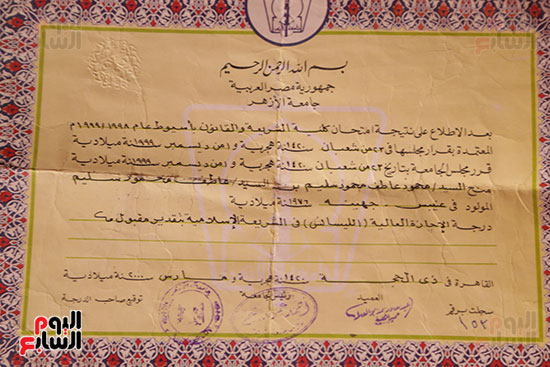 اليوم السابع
بسم الله الرحمن الرحيم
جمهورية مصر العربية
جامعة الأزهر
بعد الاطلاع على نتيجة امتحان كلية الشريعة والقانون بأسيوط عام ١٩٩٩/١٩٩٨م
المعتمدة بقرار مجلسها في من شعبان سنة ١٤٢٠ هجرية و من ديسمبر سنة ١٩٩٩ ميلادية
قرر مجلس الجامعة بتاريخ من شعبان سنة ١٤٢٠ هجرية و من ديسمبر سنة ١٩٩٩ ميلادية
منح السيد/ محمود عاطف محمود سليم بن السيد/ عاطف محمود سليم
المولود في جهينه سنة ١٩٧٦ ميلادية
درجة الإجازة العالية (الليسانس) في الشريعة الإسلامية بتقدير مقبول
القاهرة في ذى الحجة سنة ١٤٢٠ هجرية و مارس سنة ٢٠٠٠ ميلادية
سجلت برقم العميد رئيس الجامعة توقيع صاحب الدرجة
١٥٢
اليوم السابع
اليوم السابع